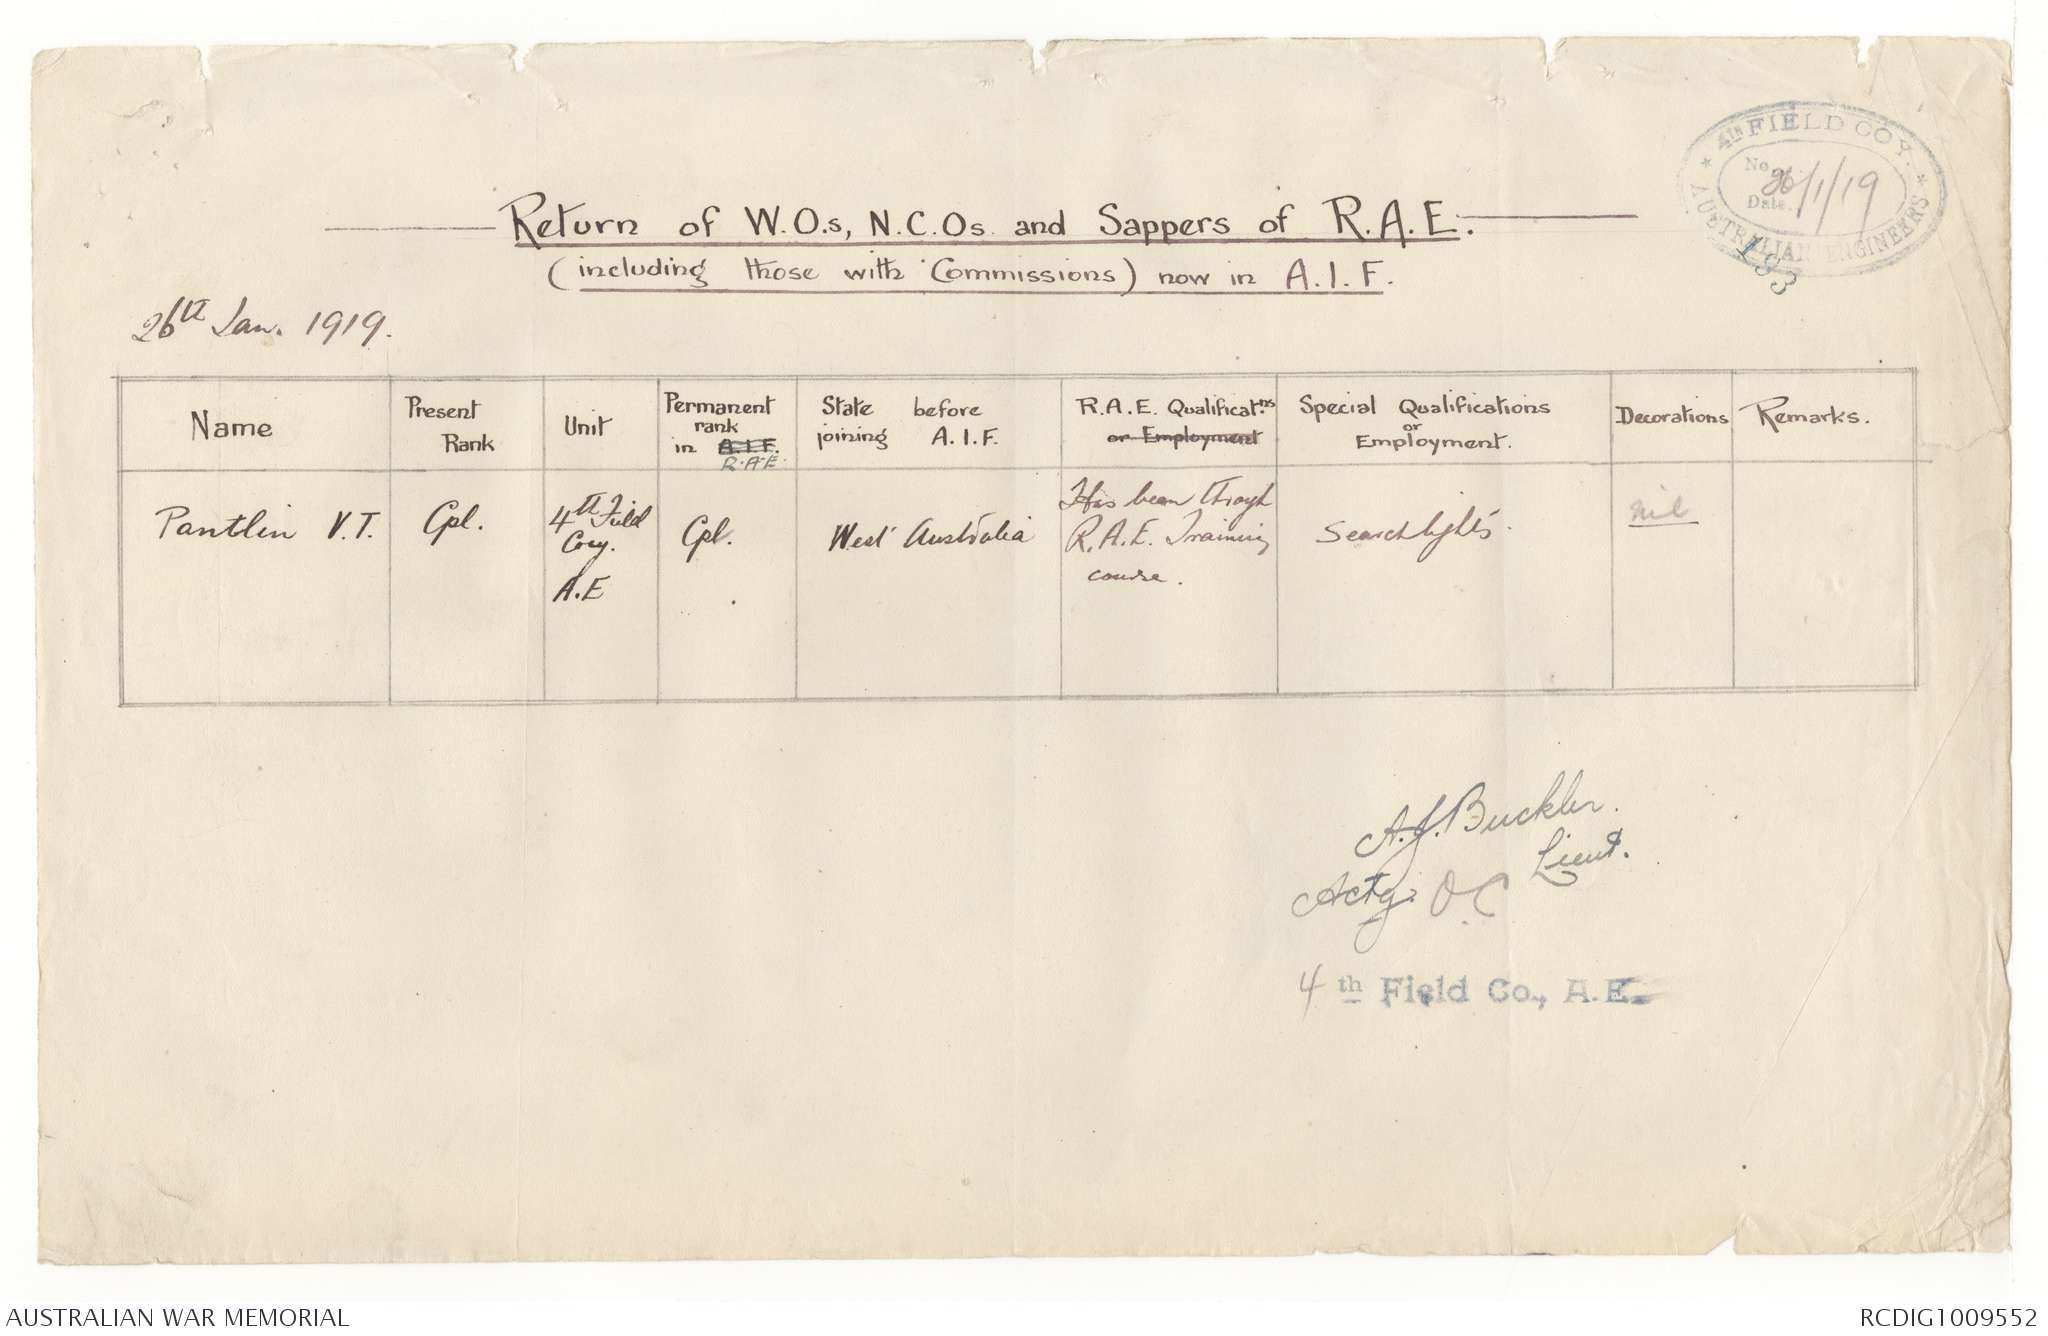 4TH FIELD COY.
No
26/1/19
Date.
* AUSTRALIAN ENGINEERS *
193
Return of W.O.s, N.C.Os and Sappers of R.A.E.
(including those with Commissions) now in A.I.F.
26th Jan. 1919.
Name
Present Rank
Unit
Permanent rank in A.I.F. R.A.E.
State before joining A.I.F.
R.A.E. Qualificatns or Employment
Special Qualifications or Employment.
Decorations
Remarks.
Pantlin V.T.
Cpl.
4th Field Coy. A.E
Cpl.
West Australia
Has been through R.A.E. Training course.
Searchlights.
nil
A.J. Buckler.
Lieut.
Actg. O.C
4th Field Co., A.E.
AUSTRALIAN WAR MEMORIAL
RCDIG1009552